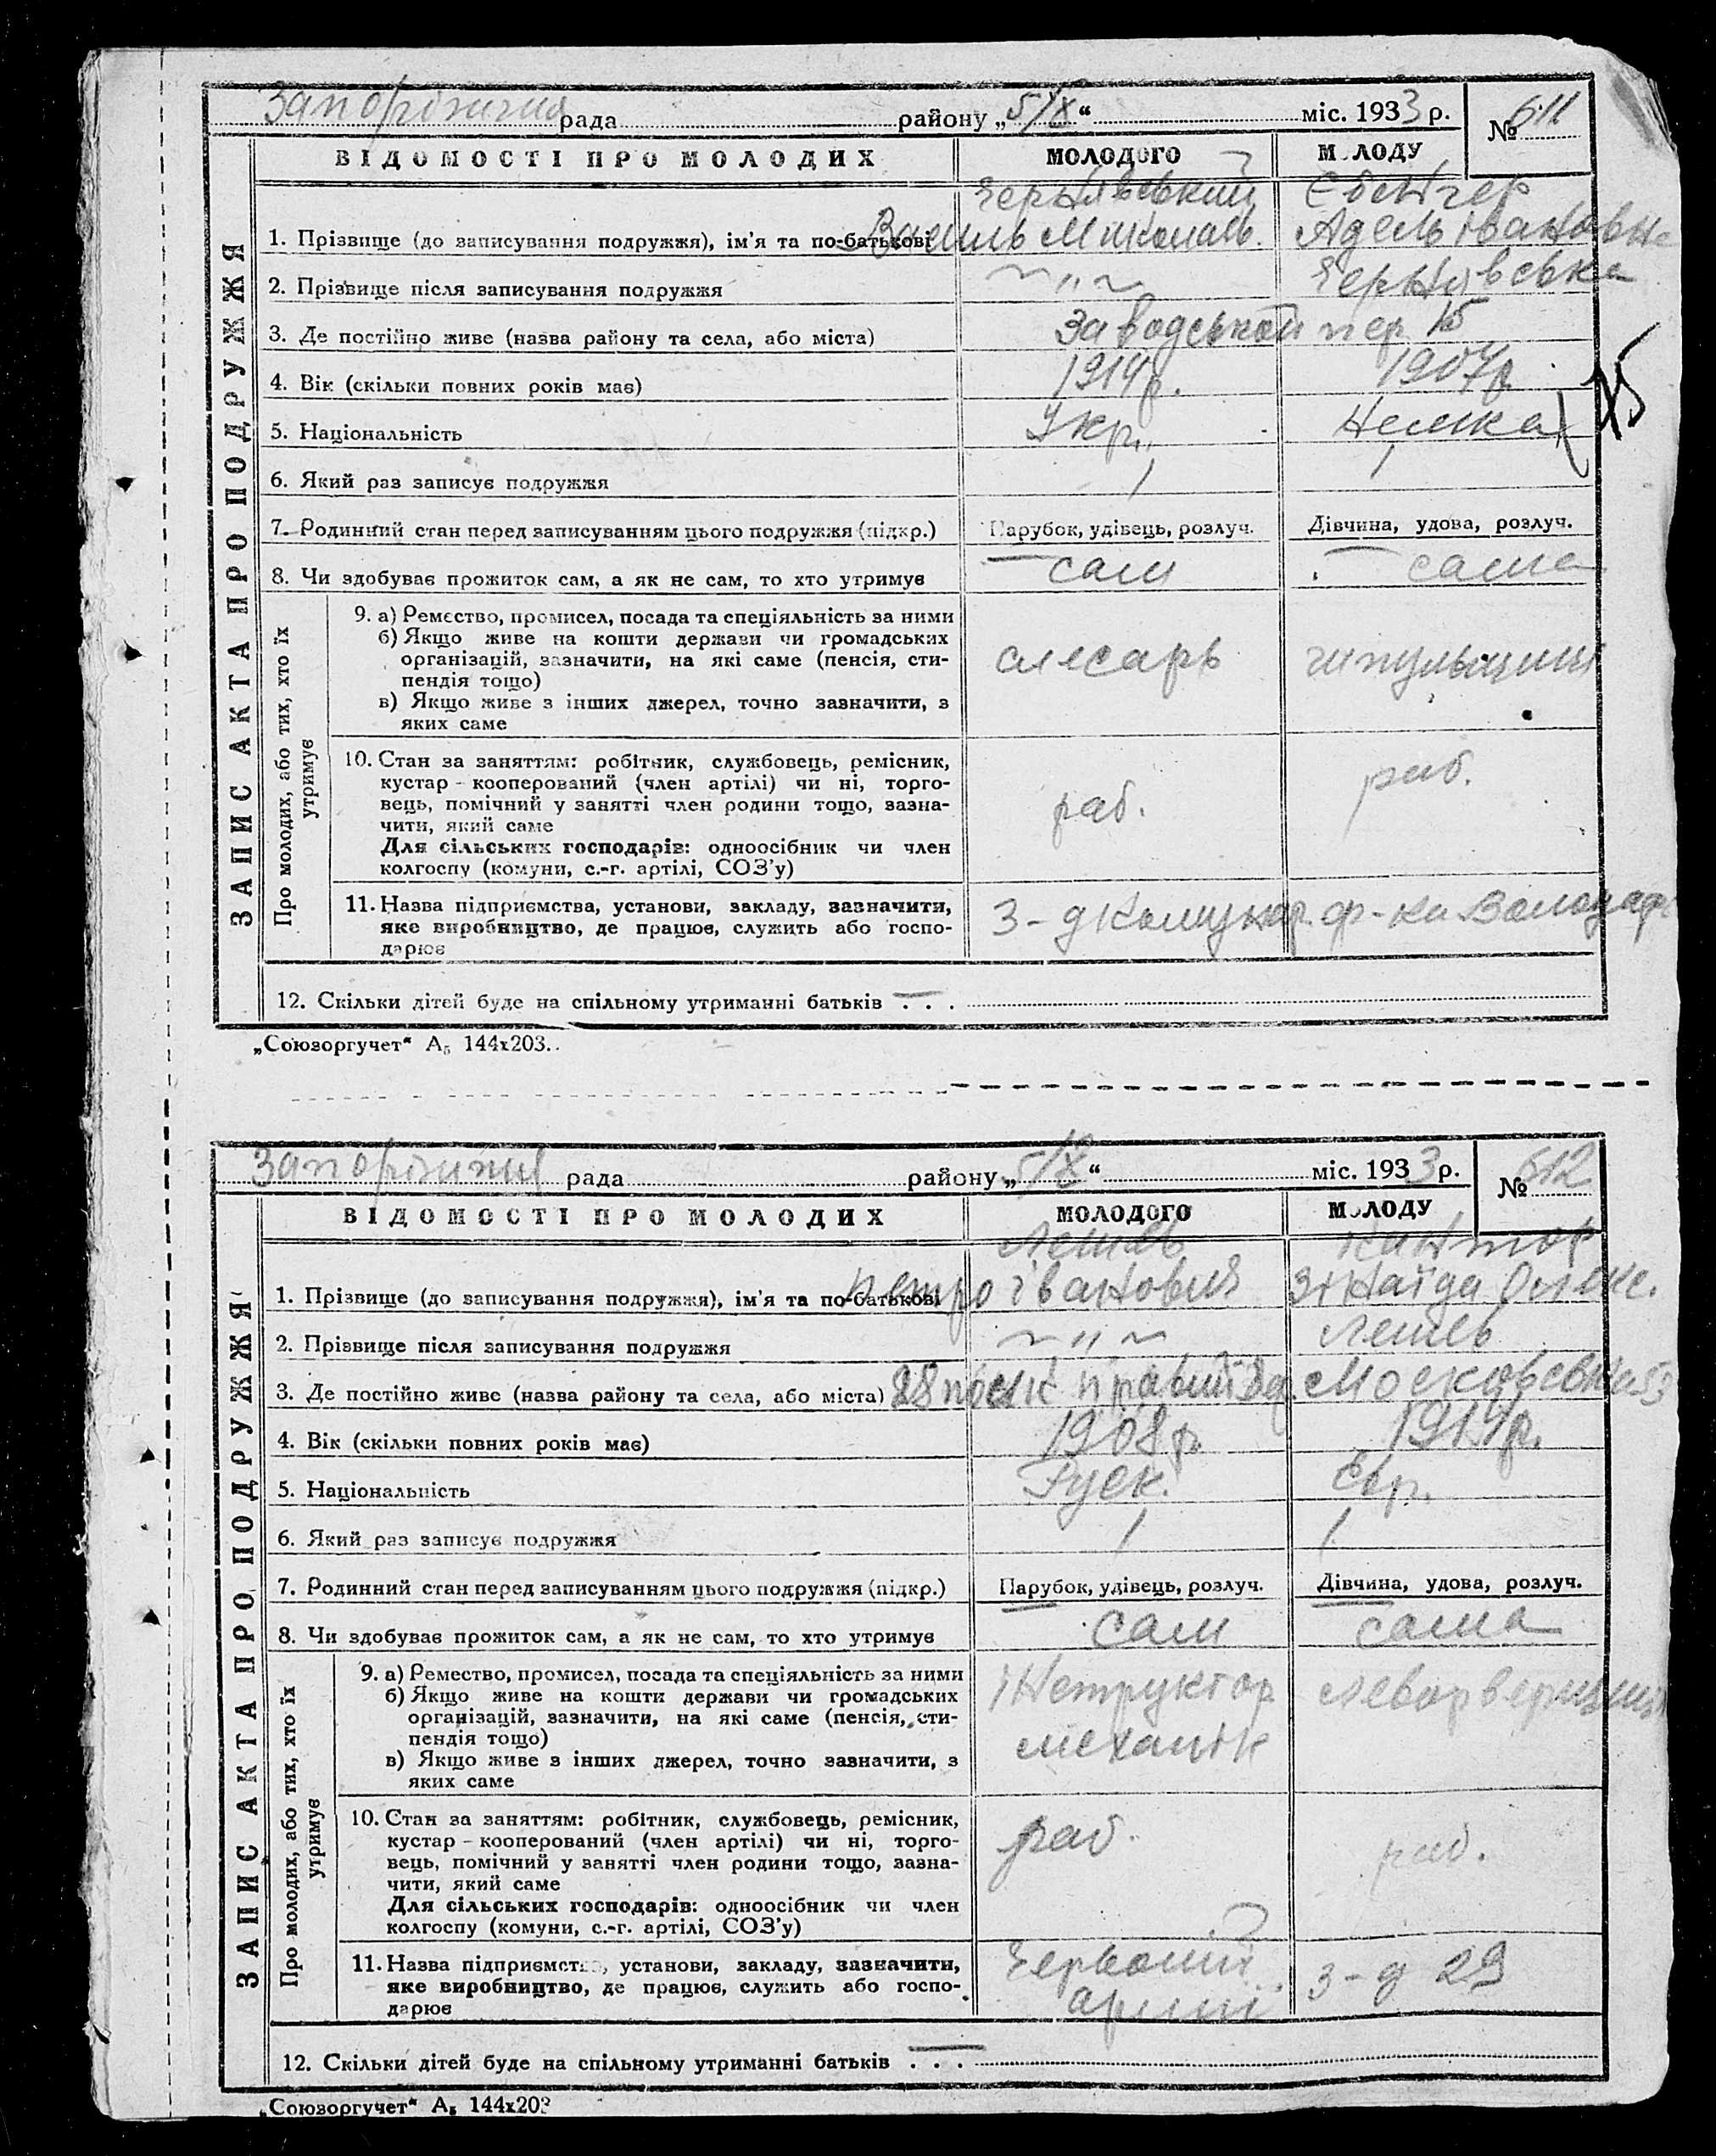 Запоріжжя рада району „5/X“ міс. 1933 р. № 611
ВІДОМОСТІ ПРО МОЛОДИХ МОЛОДОГО МОЛОДУ
ЗАПИС АКТА ПРО ПОДРУЖЖЯ
Чернявський
1. Прізвище (до записування подружжя), ім'я та по-батькові Василь Миколаїв. Адель Івановна
2. Прізвище після записування подружжя ~ „ ~ Чернявська
3. Де постійно живе (назва району та села, або міста) Заводський пер 15
4. Вік (скільки повних років має) 1914р. 1907р.
5. Національність Укр. Немка
15
6. Який раз записує подружжя 1 1
7. Родинний стан перед записуванням цього подружжя (підкр.) Парубок, удівець, розлуч. Дівчина, удова, розлуч.
8. Чи здобуває прожиток сам, а як не сам, то хто утримує сам сама
Про молодих, або тих, хто їх утримує
9. а) Ремество, промисел, посада та спеціяльність за ними
б) Якщо живе на кошти держави чи громадських
організацій, зазначити, на які саме (пенсія, сти-
пендія тощо)
слесарь
в) Якщо живе з інших джерел, точно зазначити, з
яких саме
10. Стан за заняттям: робітник, службовець, ремісник,
кустар - кооперований (член артілі) чи ні, торго-
вець, помічний у занятті член родини тощо, зазна-
чити, який саме
раб. раб.
Для сільських господарів: одноосібник чи член
колгоспу (комуни, с.-г. артілі, СОЗ'у)
11. Назва підприємства, установи, закладу, зазначити,
яке виробництво, де працює, служить або госпо-
дарює
З-д Комунар. ф-ка
12. Скільки дітей буде на спільному утриманні батьків — . . .
„Союзоргучет“ А₅ 144х203.
Запоріжжя рада району „5/X“ міс. 1933 р. № 612
ВІДОМОСТІ ПРО МОЛОДИХ МОЛОДОГО МОЛОДУ
ЗАПИС АКТА ПРО ПОДРУЖЖЯ
Кантор
1. Прізвище (до записування подружжя), ім'я та по-батькові Петро Іванович Зінаїда Олекс.
2. Прізвище після записування подружжя ~ „ ~
3. Де постійно живе (назва району та села, або міста) 28 посилк правий Московська 53
4. Вік (скільки повних років має) 1908р. 1914р.
5. Національність Руск. Євр.
6. Який раз записує подружжя 1 1.
7. Родинний стан перед записуванням цього подружжя (підкр.) Парубок, удівець, розлуч. Дівчина, удова, розлуч.
8. Чи здобуває прожиток сам, а як не сам, то хто утримує сам сама
Про молодих, або тих, хто їх утримує
9. а) Ремество, промисел, посада та спеціяльність за ними
б) Якщо живе на кошти держави чи громадських
організацій, зазначити, на які саме (пенсія, сти-
пендія тощо)
в) Якщо живе з інших джерел, точно зазначити, з
яких саме
Інструктор револьверщиця
механік
10. Стан за заняттям: робітник, службовець, ремісник,
кустар - кооперований (член артілі) чи ні, торго-
вець, помічний у занятті член родини тощо, зазна-
чити, який саме
раб. раб.
Для сільських господарів: одноосібник чи член
колгоспу (комуни, с.-г. артілі, СОЗ'у)
11. Назва підприємства, установи, закладу, зазначити,
яке виробництво, де працює, служить або госпо-
дарює
Червоний з-д 29
армії
12. Скільки дітей буде на спільному утриманні батьків — . . .
„Союзоргучет“ А₅ 144х203